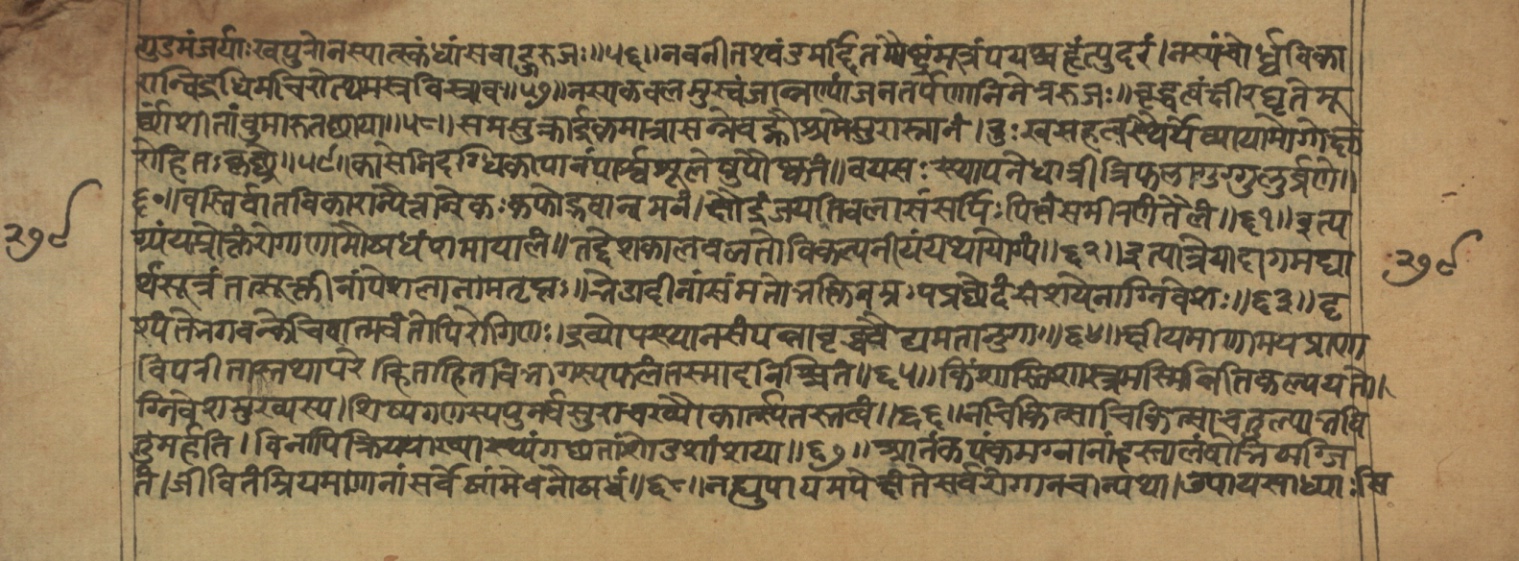 गुडमंजर्याः खपुरो नस्यात्स्कंधांसबाहुरुजः ॥५६॥ नवनीतखंडमर्दितमौष्ट्रं मूत्रं पयश्च हंत्युदरं । नस्यं चोर्ध्वविका
रान्विद्रधिमचिरोत्थमस्रविस्रावः ॥५७॥ नस्यं कवलमुखजान्नस्यांजनतर्पणानि नेत्ररुजः ॥ वृद्धत्वं क्षीरघृते मू
र्छां शीतांबुमारुतछाया ॥५८॥ समशुक्तार्द्रकमात्रासन्नेवह्नौ श्रमे सुरास्नानं । दुःखसहत्वे स्थैर्ये व्यायामो गोक्षु
रोहितः कृच्छ्रे ॥५९॥ कासे निदग्धिका पानं पार्श्वशूले पुष्करं ॥ वयसः स्थापने धात्री त्रिफला गुग्गुलुर्व्रणे ॥
६०॥ वस्तिर्वातविकारान्पैत्तान्रेकः कफोद्भवान्वमनं । क्षौद्रं जयति बलासं सर्पिः पित्तं समीरणं तैलं ॥६१॥ इत्य
ग्र्यं यत्प्रोक्तं रोगाणामौषधं शमायालं ॥ तद्देशकालबलतो विकल्पनीयं यथायोगं ॥६२॥ इत्यात्रेयादागमय्या
र्थसूत्रं तत्सूक्तीनां पेशलानामतृप्तः ॥ भेडादीनां संमतो भक्तिनम्रः पप्रछेदं संशयेनाग्निवेशः ॥६३॥ दृ
श्यंते भगवन्केचिदात्मवंतोपि रोगिणः । द्रव्योपस्थानसंपन्ना वृद्धवैद्यमतानुगाः ॥६४॥ क्षीयमाणामयप्राणा
विपरीतास्तथापरे । हिताहितविभागस्य फलं तस्मादनिश्चितं ॥६५॥ किं शास्ति शास्त्रमस्मिन्निति कल्पयतो
ग्निवेशमुख्यस्य । शिष्यगणस्य पुनर्वसुराचख्यौ कार्त्स्न्यतस्तत्वं ॥६६॥ न चिकित्साचिकित्सा च तुल्या भवि
तुमर्हति । विनापि क्रियया स्वास्थ्यं गछतां षोडशांशया ॥६७॥ आतंकपंकमग्नानां हस्तालंबो भिषग्जि
तं । जीवितं म्रियमाणानां सर्वेषामेव नौषधं ॥६८॥ न ह्युपायमपेक्षंते सर्वे रोगा न चान्यथा । उपायसाध्याः सि
२७९
२७९